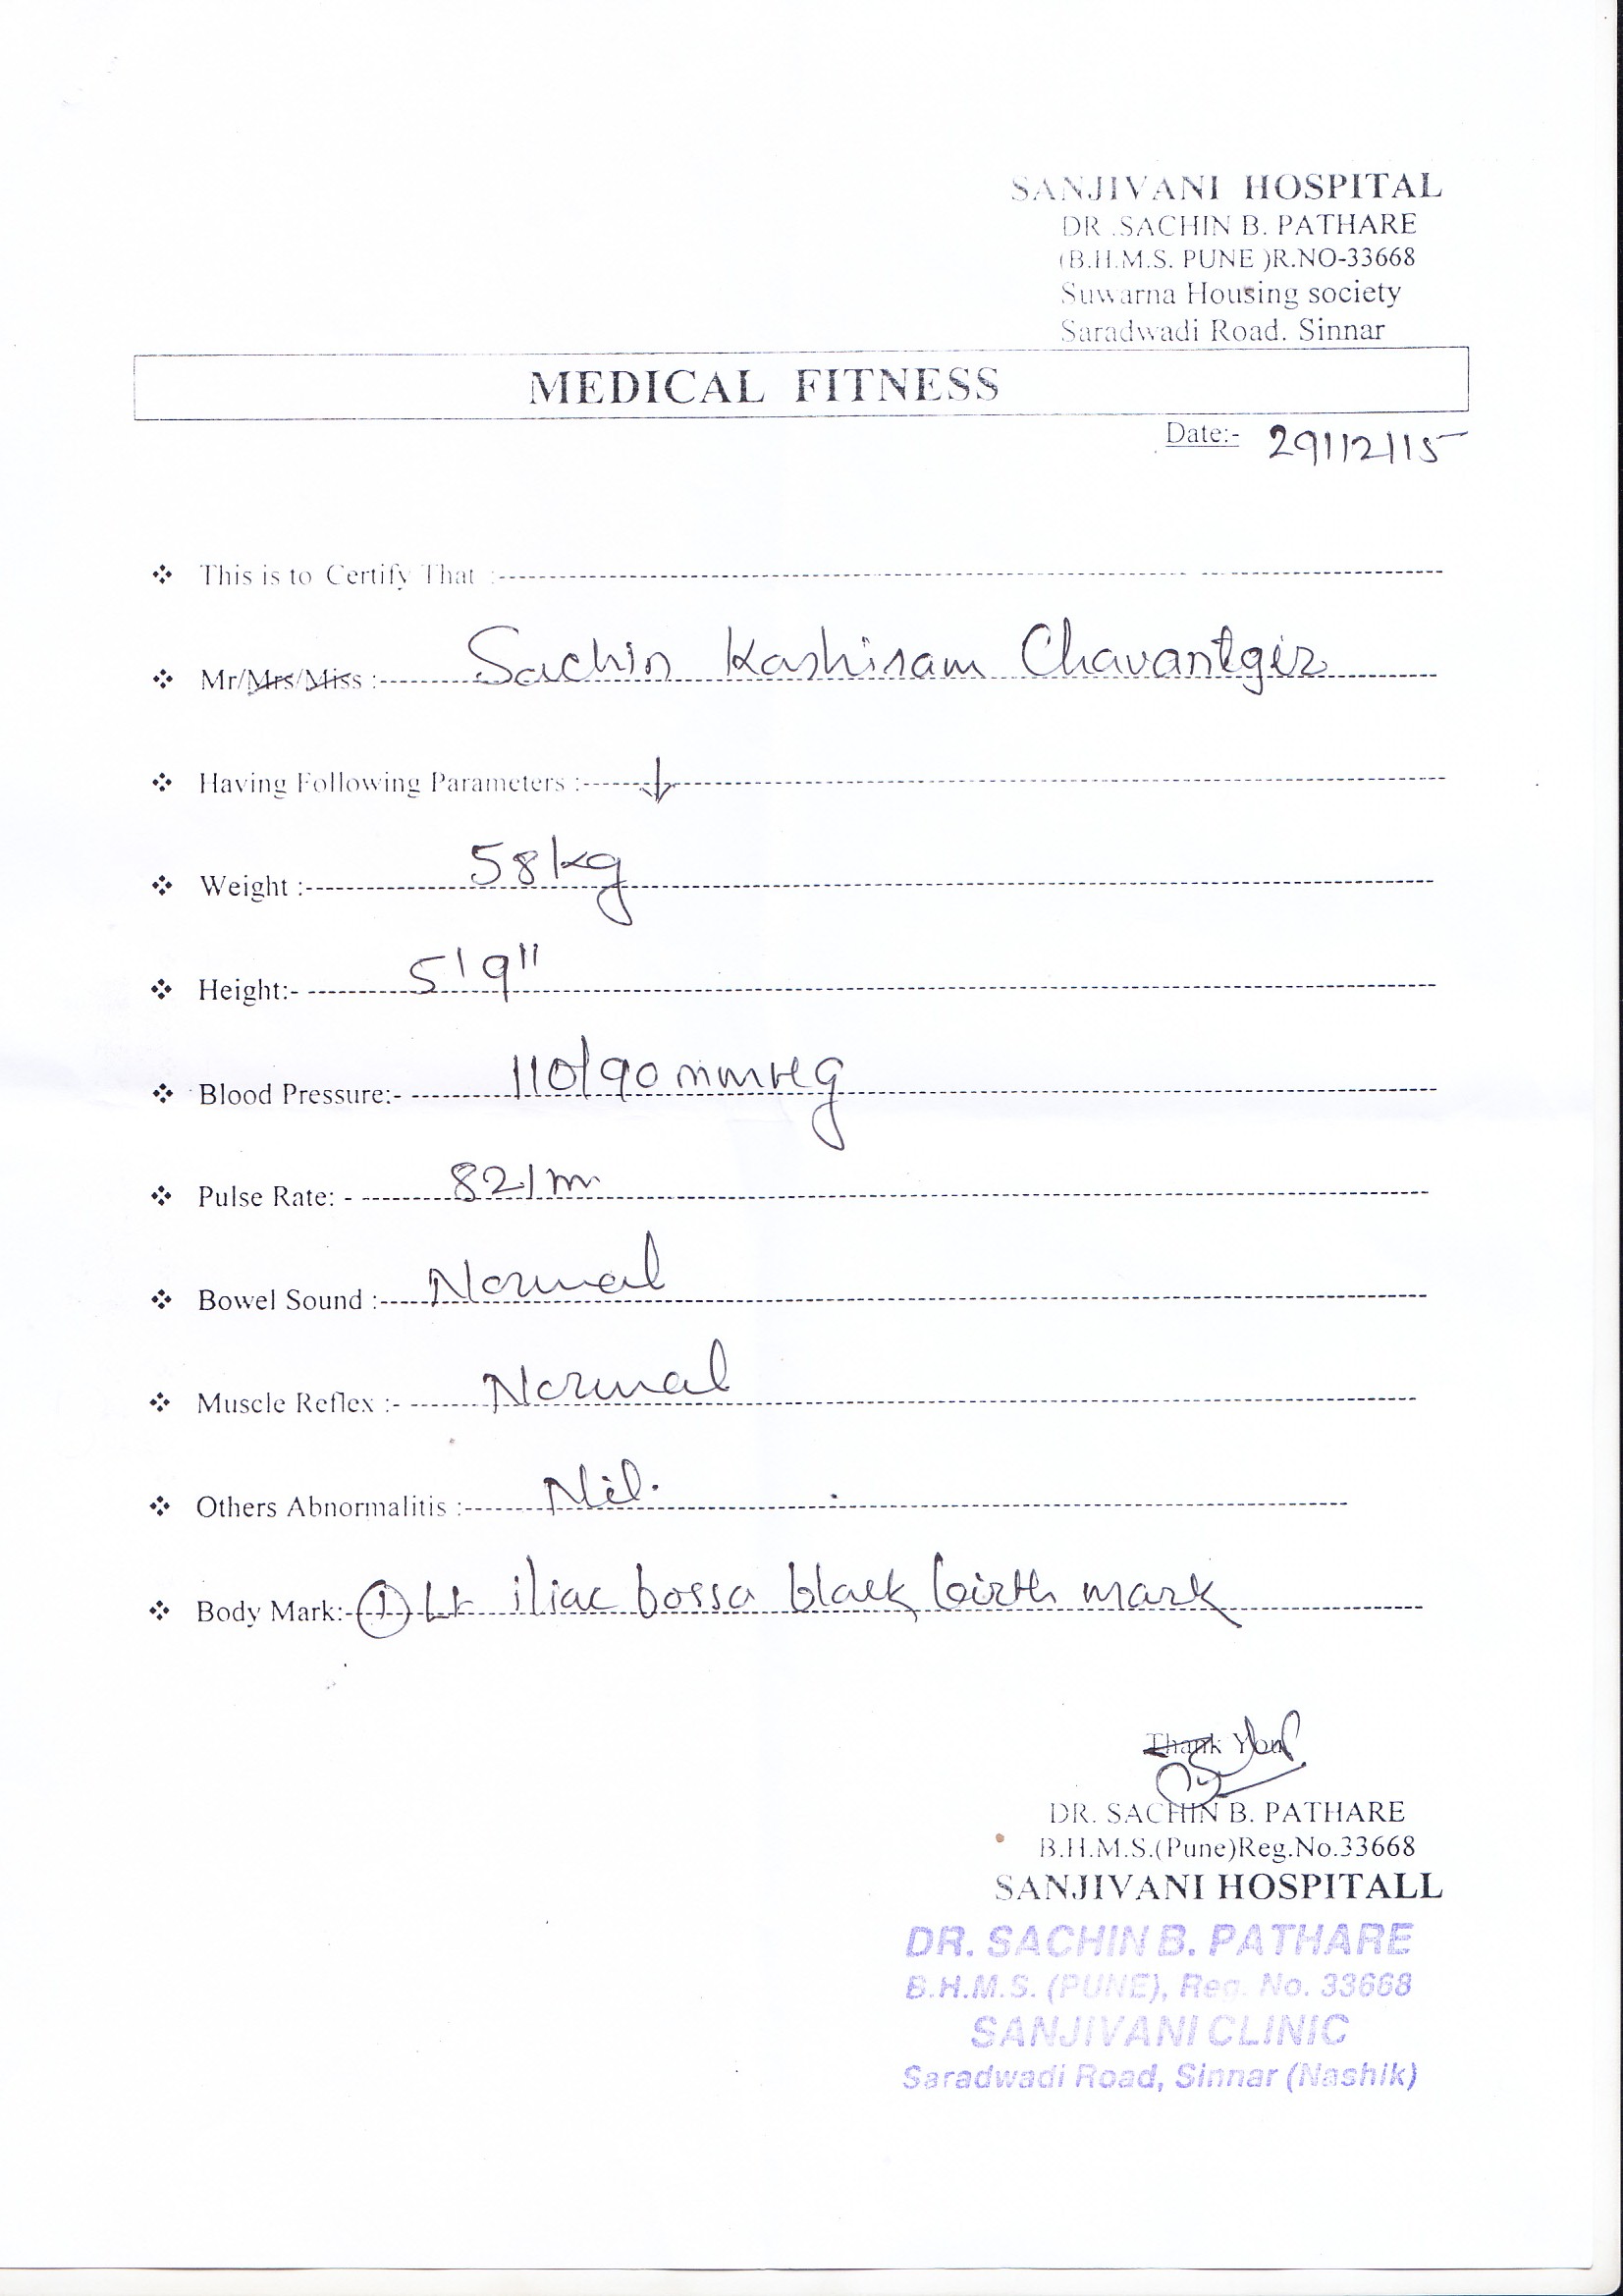 SANJIVANI HOSPITAL
DR .SACHIN B. PATHARE
(B.H.M.S. PUNE )R.NO-33668
Suwarna Housing society
Saradwadi Road. Sinnar
MEDICAL FITNESS
Date:- 29/12/15
This is to Certify That :-
Mr/Mrs/Miss :- Sachin Kashiram Chavantgir
Having Following Parameters :- ↓
Weight :- 58kg
Height:- 5'9"
Blood Pressure:- 110/90 mmHg
Pulse Rate: - 82/m
Bowel Sound :- Normal
Muscle Reflex :- Normal
Others Abnormalitis :- Nil.
Body Mark:- ① Lt iliac bossa black birth mark
Thank You
DR. SACHIN B. PATHARE
B.H.M.S.(Pune)Reg.No.33668
SANJIVANI HOSPITALL
DR. SACHIN B. PATHARE
B.H.M.S. (PUNE), Reg. No. 33668
SANJIVANI CLINIC
Saradwadi Road, Sinnar (Nashik)